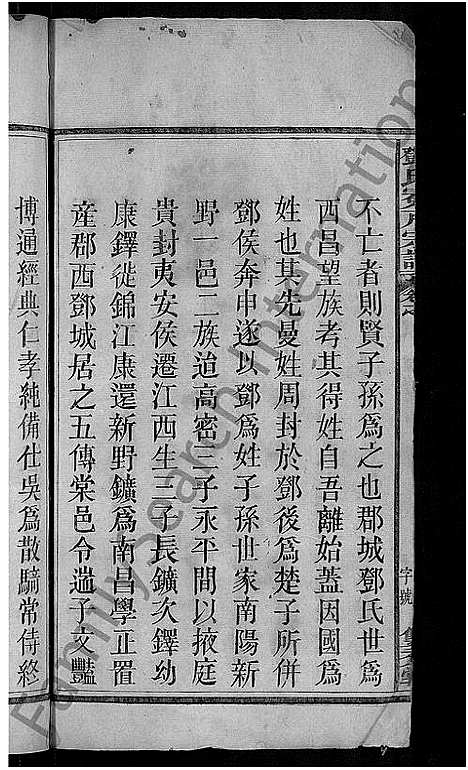 鄧氏
宗譜
字號
不亡者則賢子孫爲之也郡城鄧氏世爲
西昌望族考其得姓自吾離始蓋因國爲
姓也其先曼姓周封於鄧後爲楚子所併
鄧侯奔申遂以鄧爲姓子孫世家南陽新
野一邑二族迨高密三子永平間以掖庭
貴封夷安侯遷江西生三子長鑛次鐸幼
康鐸徙錦江康還新野鑛爲南昌學正置
產郡西鄧城居之五傳棠邑令邁子文豔
博通經典仁孝純備仕吳爲散騎常侍終
FamilySearch International